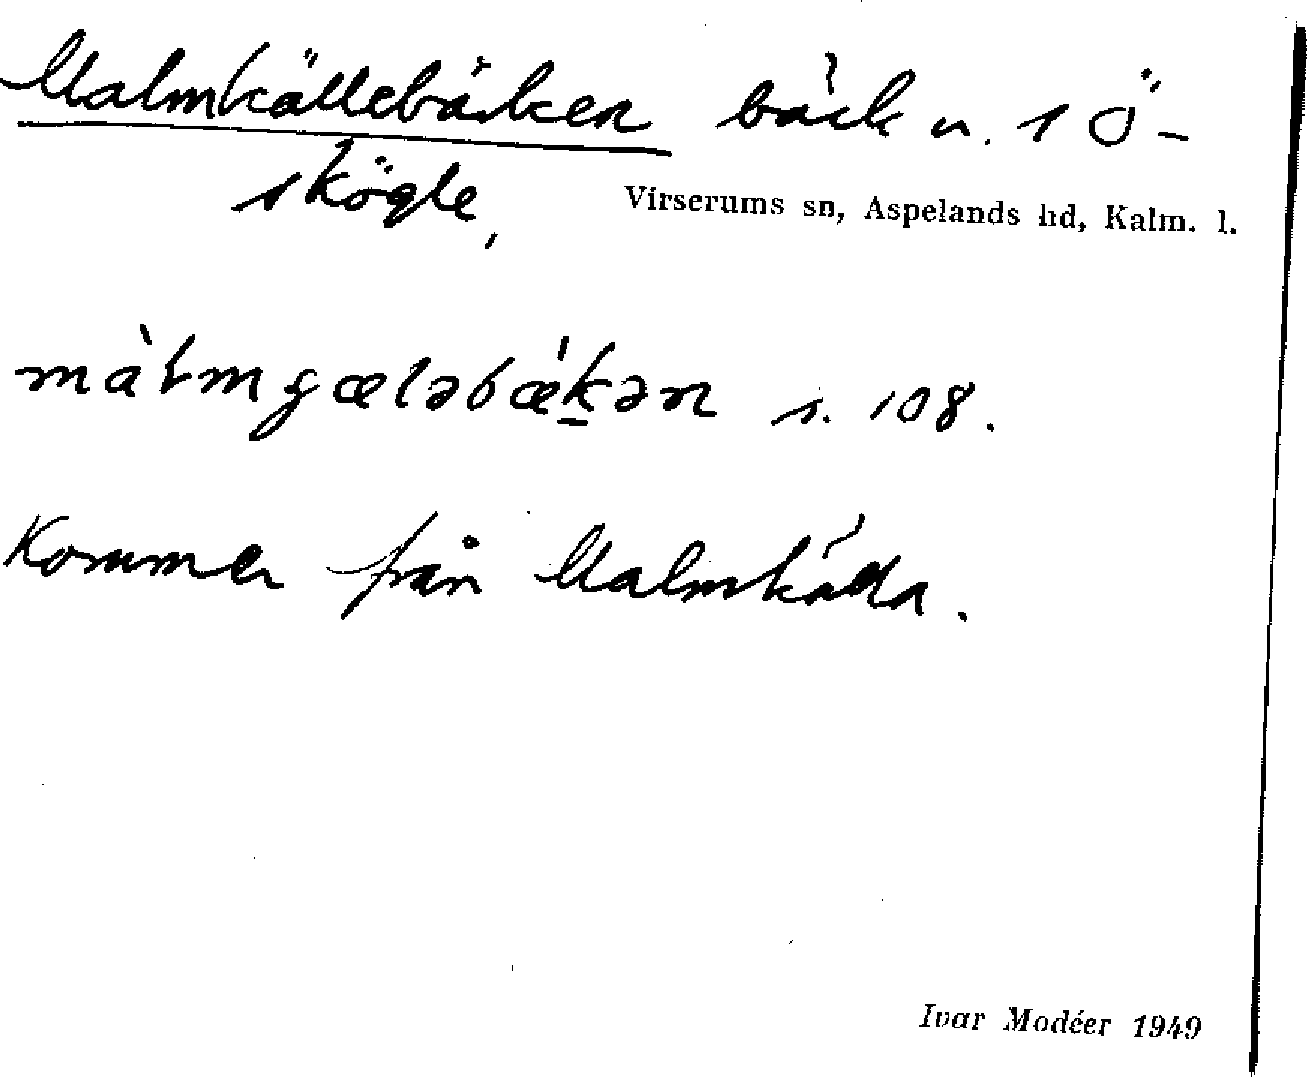 Malmkällebäcken bäck u. 1 Ö-
skögle,
Virserums sn, Aspelands hd, Kalm. l.
màlmgæləbǽkən s. 108.
Kommer från Malmkälla.
Ivar Modéer 1949